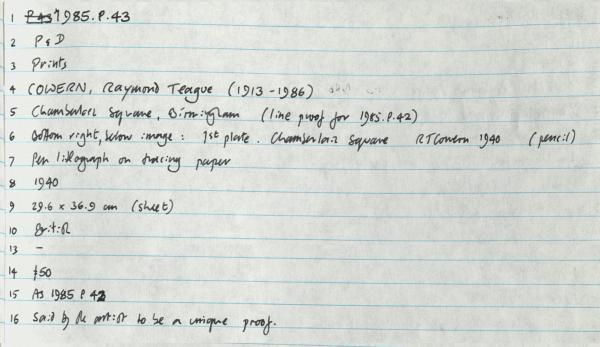 1 P.43 1985.P.43
2 P & D
3 Prints
4 COWERN, Raymond Teague (1913-1986)
5 Chamberlain Square, Birmingham (line proof for 1985.P.42)
6 Bottom right, below image: 1st plate. Chamberlain Square RTCowern 1940 (pencil)
7 Pen lithograph on tracing paper
8 1940
9 29.6 x 36.9 cm (sheet)
10 British
13 -
14 £50
15 As 1985 P 42
16 Said by the artist to be a unique proof.